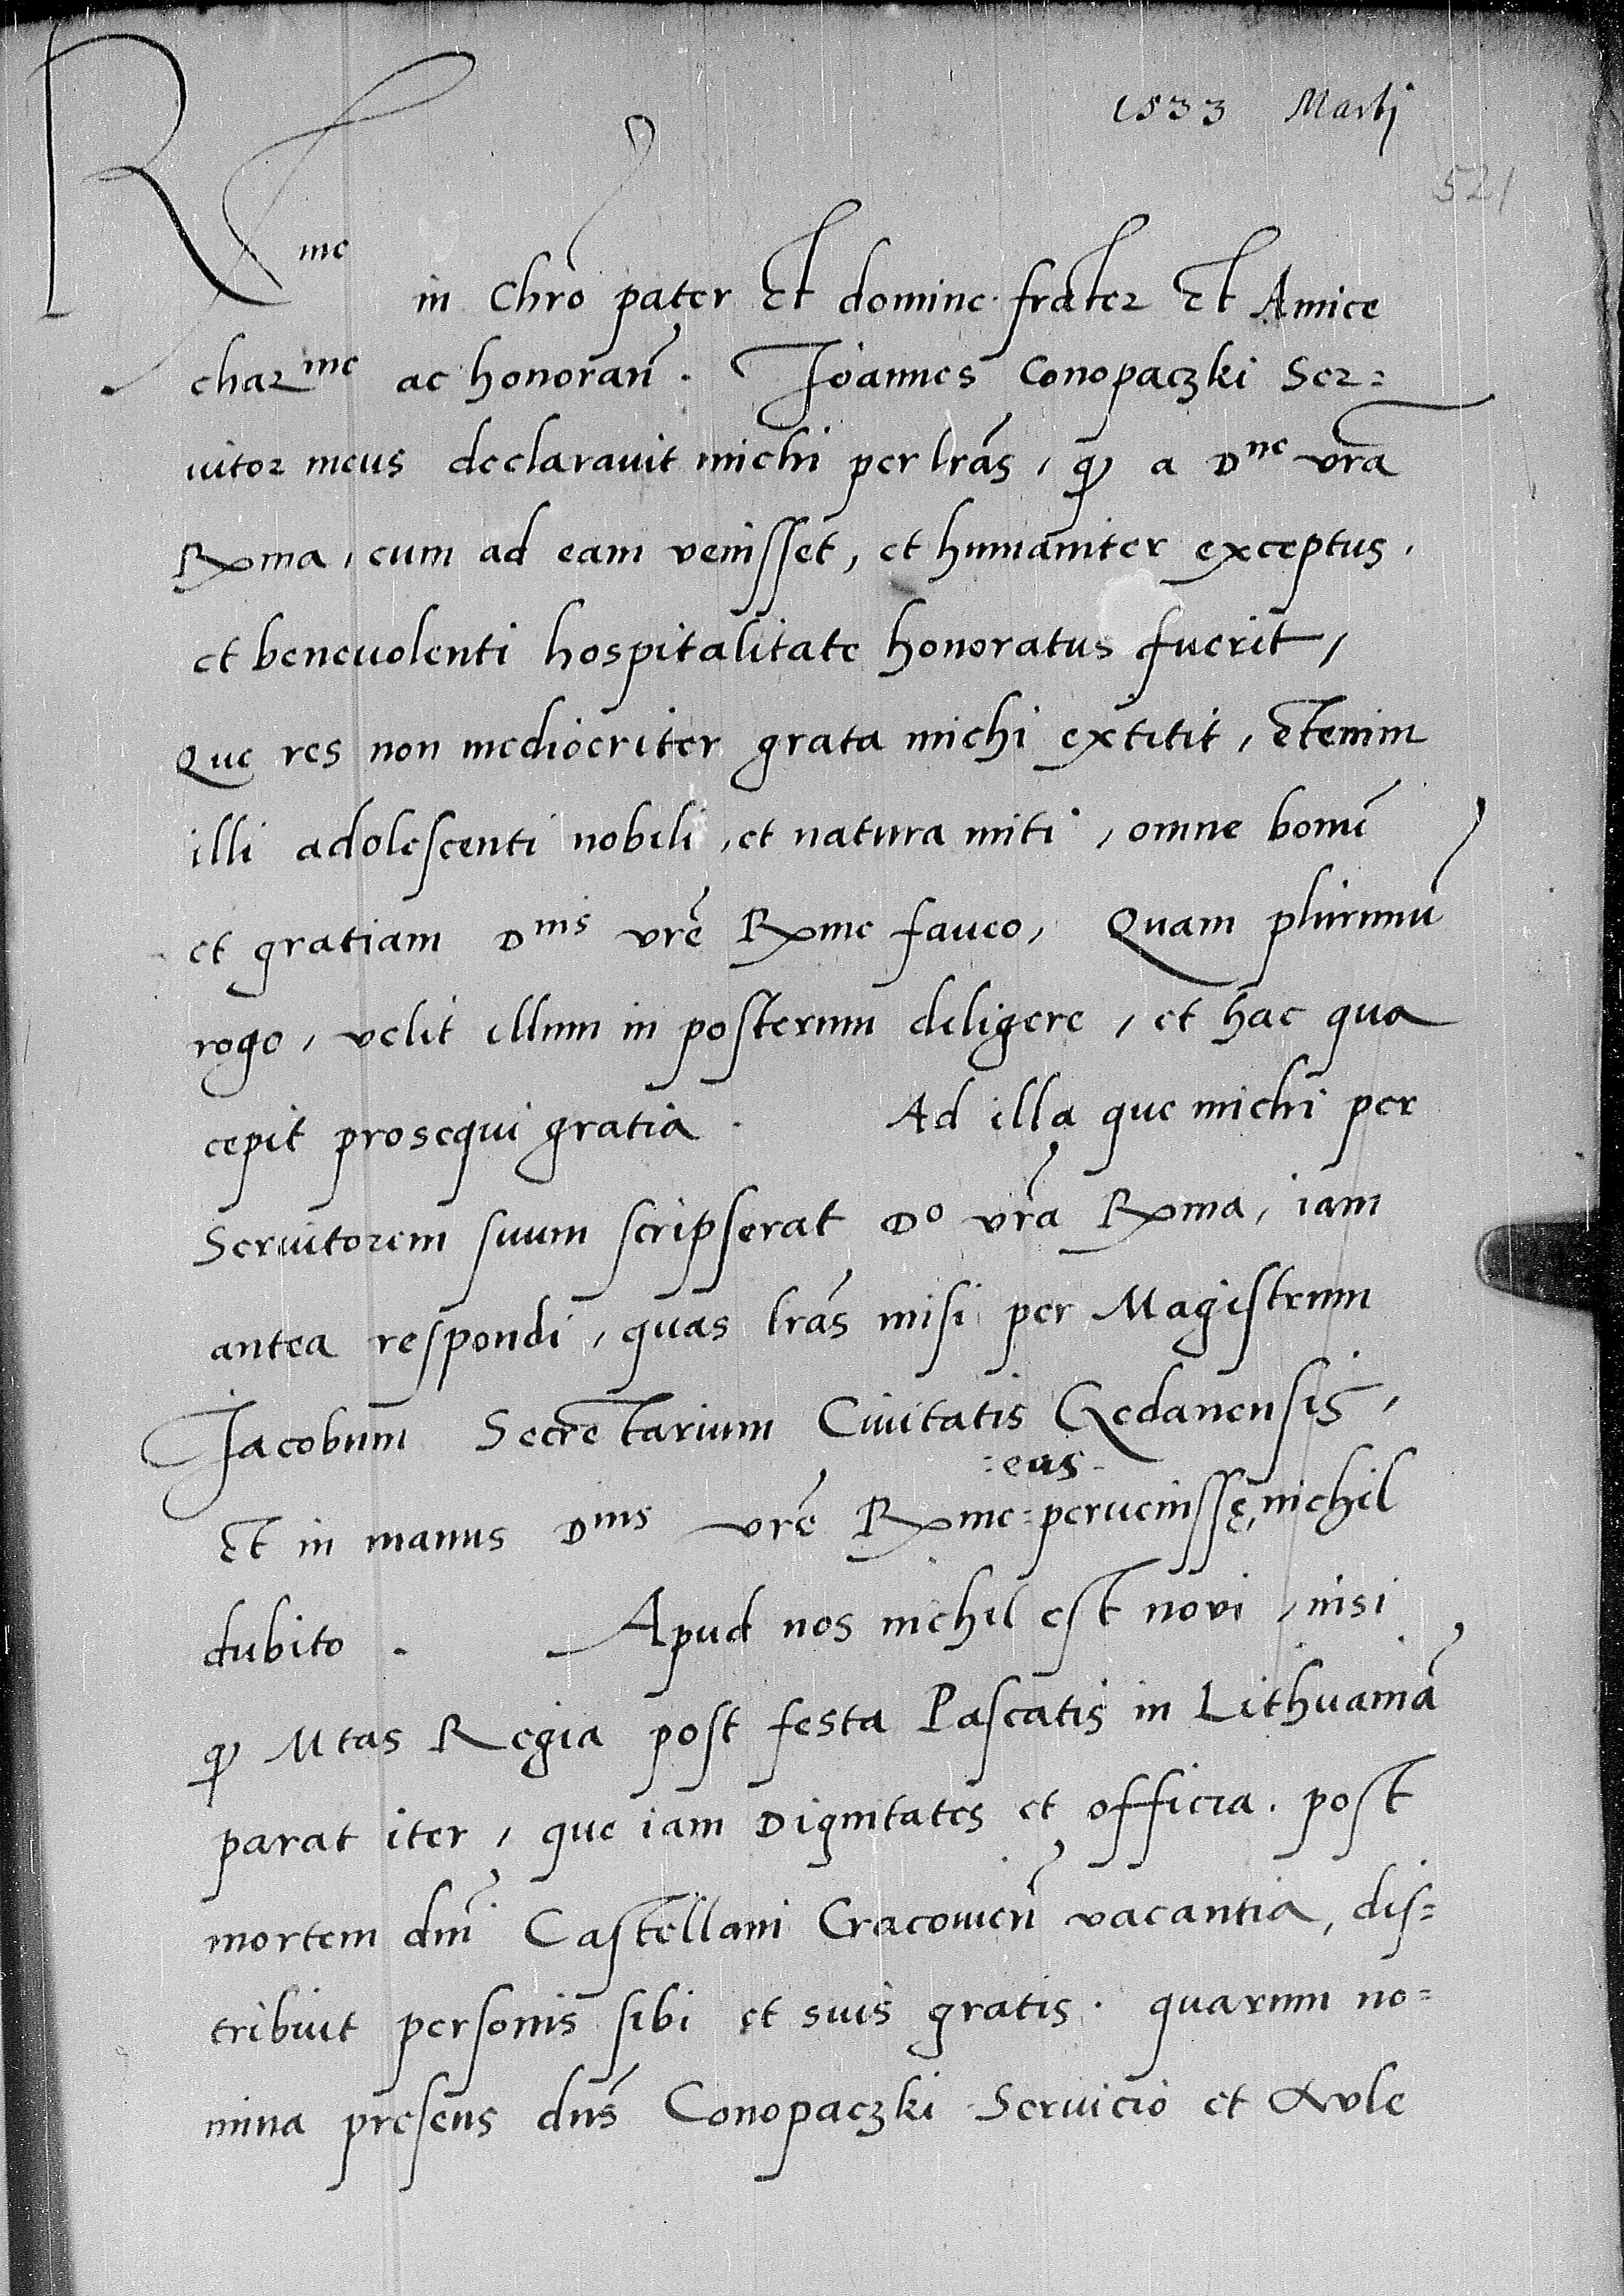 1533 Martij
521
R me
in Chro pater Et domine frater Et Amice
charme ac honoran̄. Ioannes Conopaczki Ser=
uitor meus declarauit michi per lrās, ꝙ a Dne vrā
Rma, cum ad eam venisset, et humaniter exceptus,
et beneuolenti hospitalitate honoratus fuerit,
Que res non mediocriter grata michi extitit, Etenim
illi adolescenti nobili, et natura miti, omne bonū
et gratiam Dnis vrē Rme faueo, Quam plurimū
rogo, velit illum in posterum diligere, et hac qua
cepit prosequi gratia. Ad illa que michi per
Seruitorem suum scripserat Do vrā Rma, iam
antea respondi, quas lrās misi per Magistrum
Iacobum Secretarium Ciuitatis Gedanensis,
:eas:
Et in manus Dnis vrē Rme peruenisse, nichil
dubito. Apud nos nichil est novi, nisi
ꝙ Mtas Regia post festa Pascatis in Lithuaniā
parat iter, que iam Dignitates et officia. post
mortem dnī Castellani Cracouien̄ vacantia, dis=
tribuit personis sibi et suis gratis. quarum no=
mina presens dn̄s Conopaczki Seruicio et Aule